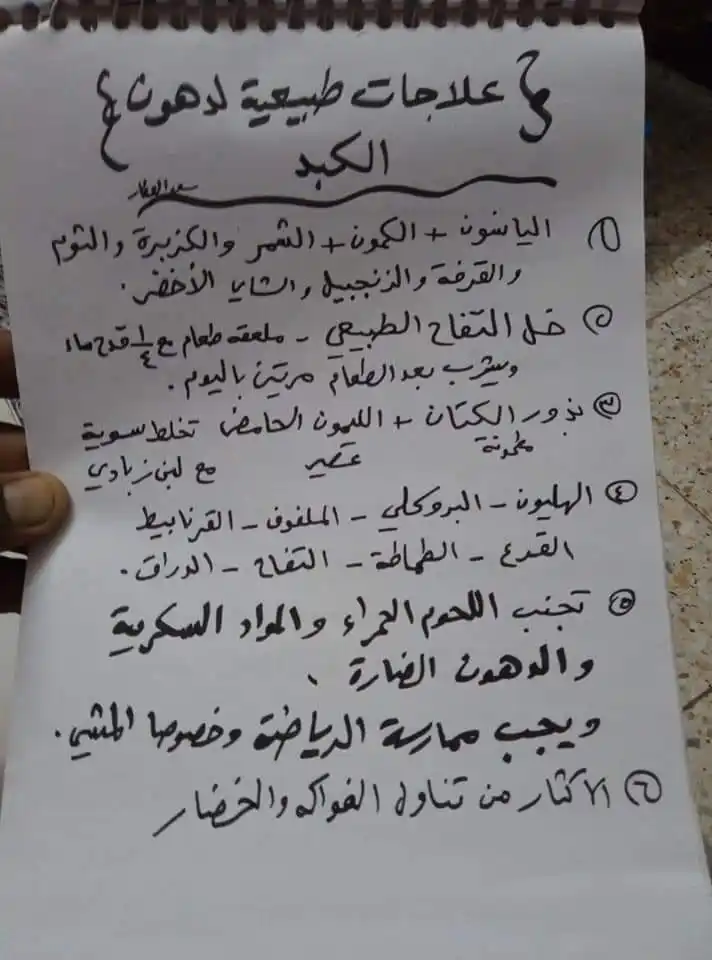 { علاجات طبيعية لدهون }
الكبد
سعد العطار
١ اليانسون + الكمون + الشمر والكزبرة والثوم
والقرفة والزنجبيل والشاي الأخضر.
٢ خل التفاح الطبيعي - ملعقه طعام مع ١/٤ قدح ماء
ويشرب بعد الطعام مرتين باليوم.
٣ بذور الكتان + الليمون الحامض تخلط سوية
مطحونة عصير مع لبن زبادي
٤ الهليون - البروكلي - الملفوف - القرنابيط
القرع - الطماطة - التفاح - الدراق.
٥ تجنب اللحوم الحمراء والمواد السكرية
والدهون الضارة.
ويجب ممارسة الرياضة وخصوصا المشي.
٦ الاكثار من تناول الفواكه والخضار